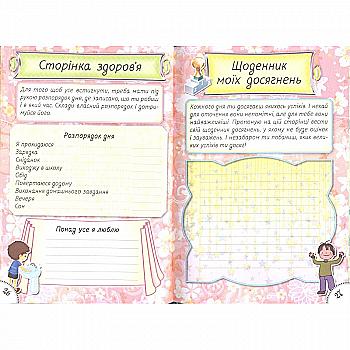 Сторінка здоров'я
Для того щоб усе встигнути, треба мати під
рукою розпорядок дня, де записано, що ти робиш
і в який час. Склади власний розпорядок і дотри-
муйся його.
Розпорядок дня
Я прокидаюся
Зарядка
Сніданок
Виходжу в школу
Обід
Повертаюся додому
Виконання домашнього завдання
Вечеря
Сон
Понад усе я люблю
26
Щоденник
моїх досягнень
Кожного дня ти досягаєш якихось успіхів. І нехай
для оточення вони непомітні, але для тебе вони
найважливіші! Пропоную на цій сторінці вести
свій щоденник досягнень, у якому не буде оцінок
і зауважень. І незабаром ти побачиш, яких вели-
ких успіхів ти досяг!
27